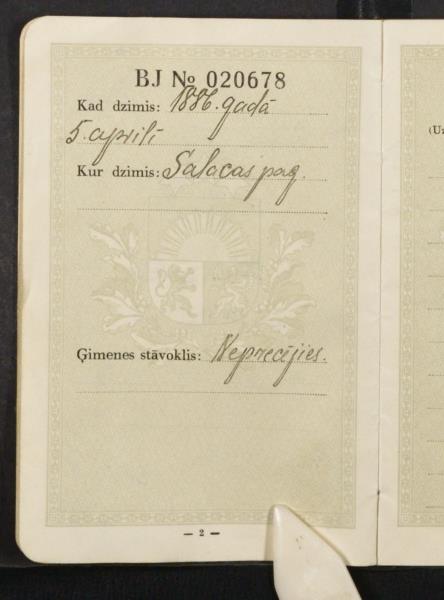 BJ № 020678
Kad dzimis: 1886. gadā
5. aprīlī
Kur dzimis: Salacas pag.
Ģimenes stāvoklis: Neprecējies.
— 2 —
(Uz